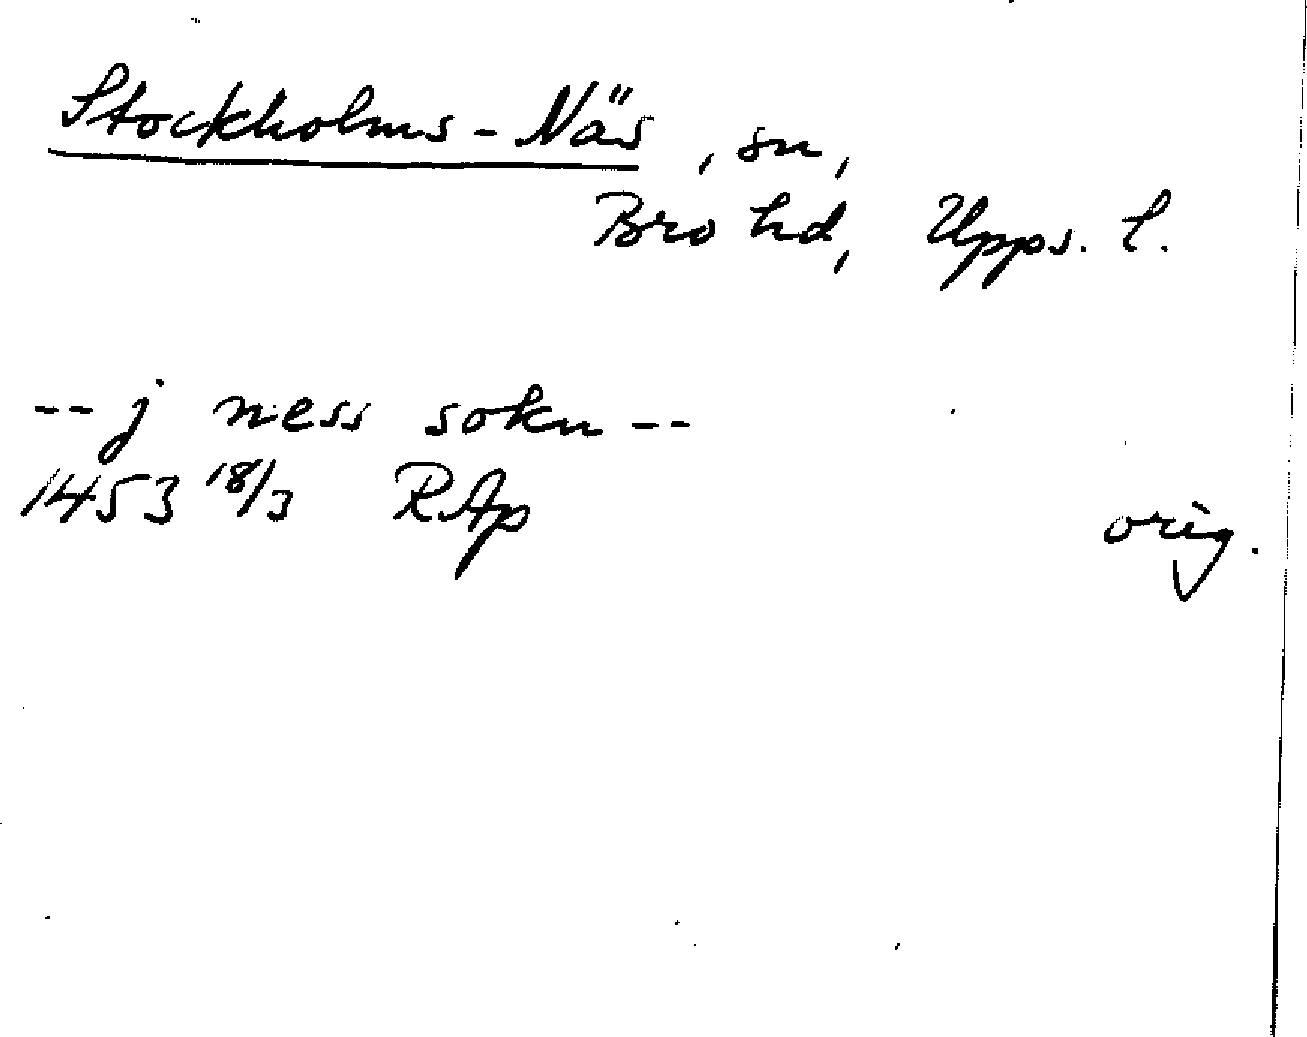 Stockholms-Näs, sn,
Bro hd, Upps. l.
-- j ness sokn --
1453 18/3 RAp orig.